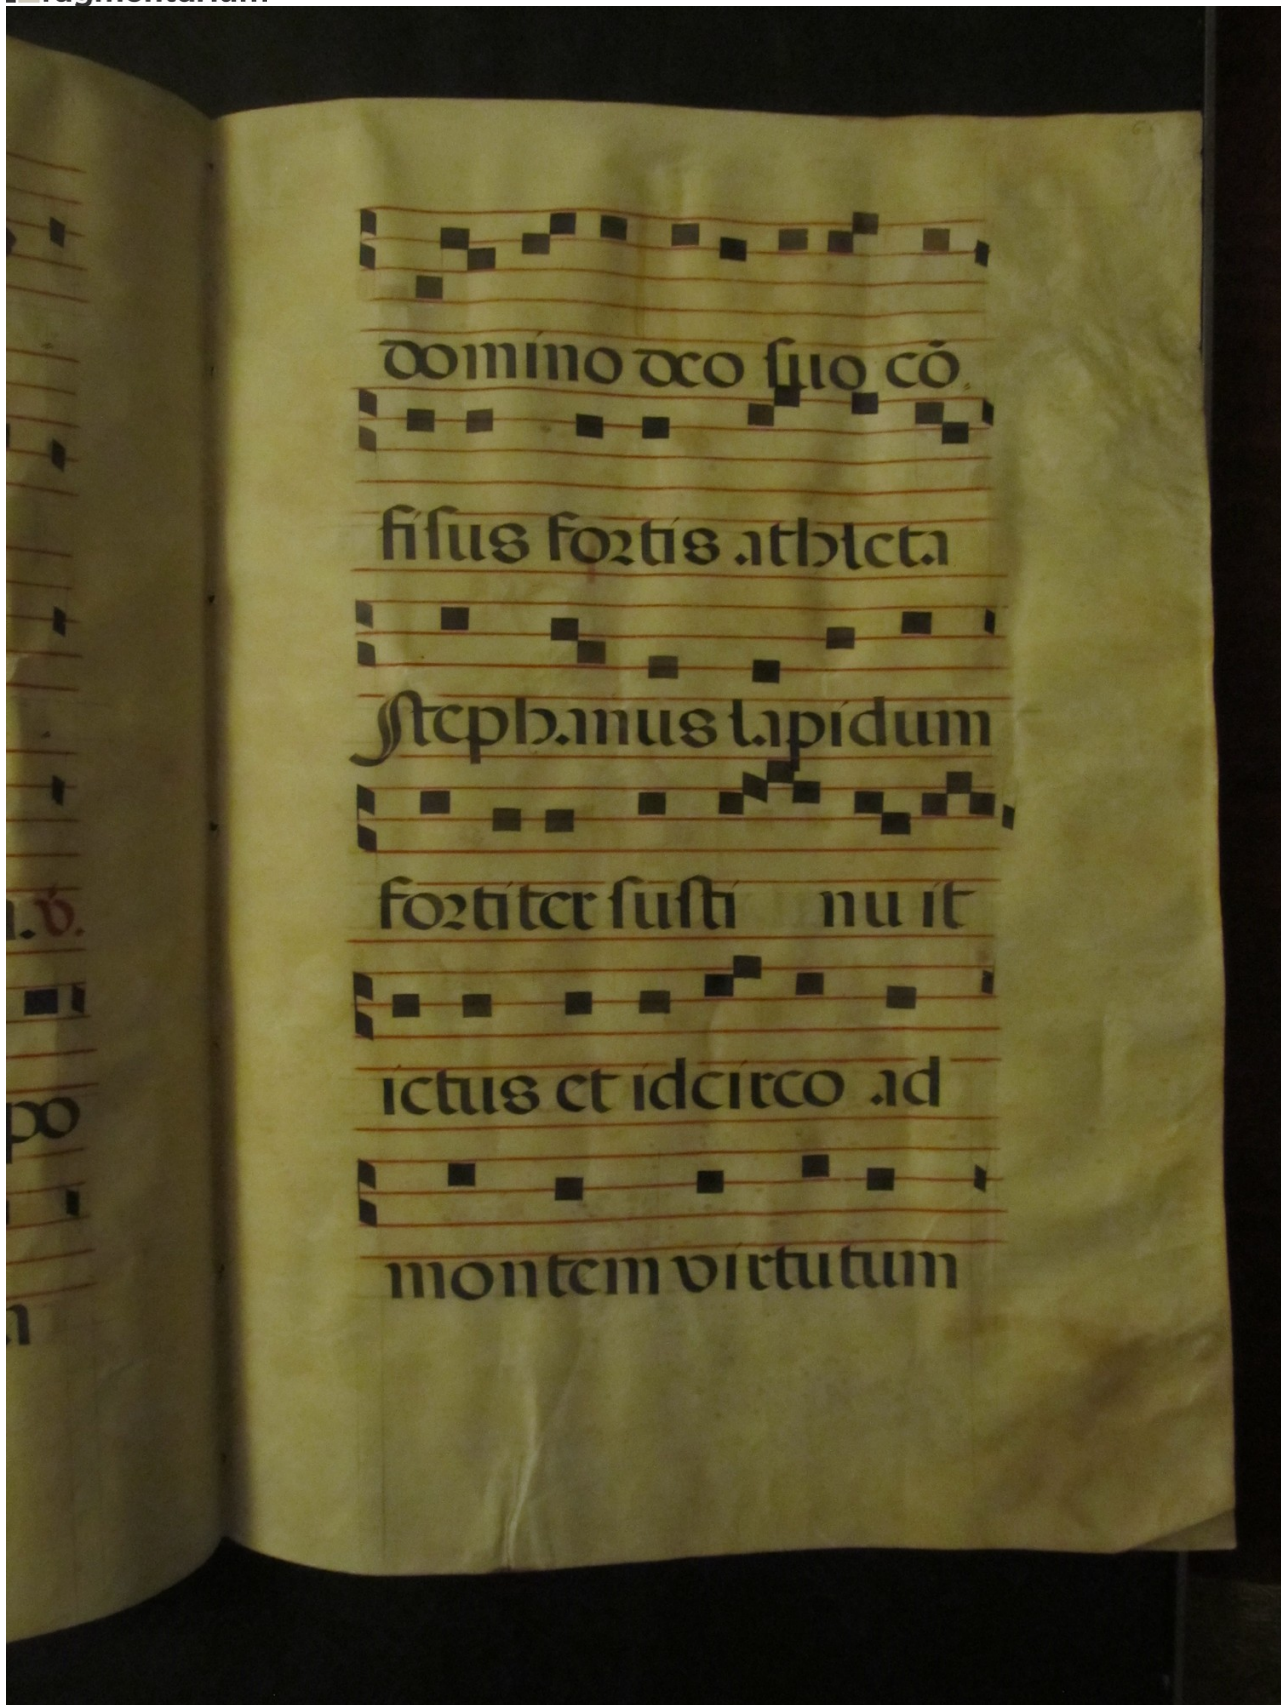 fragmentarium
domino deo suo cō
fisus fortis athleta
Stephanus lapidum
fortiter susti nu it
ictus et idcirco ad
montem virtutum
a. V.
po